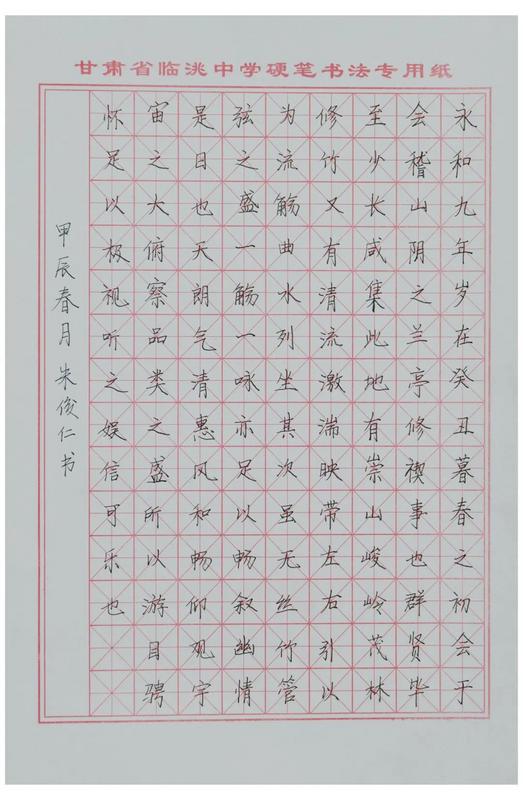 甘肃省临洮中学硬笔书法专用纸
永和九年岁在癸丑暮春之初会于
会稽山阴之兰亭修禊事也群贤毕
至少长咸集此地有崇山峻岭茂林
修竹又有清流激湍映带左右引以
为流觞曲水列坐其次虽无丝竹管
弦之盛一觞一咏亦足以畅叙幽情
是日也天朗气清惠风和畅仰观宇
宙之大俯察品类之盛所以游目骋
怀足以极视听之娱信可乐也
甲辰春月朱俊仁书